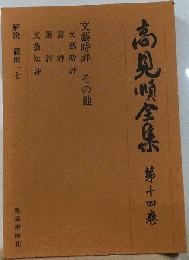 高見順全集 第十四巻
文藝時評 その他
文藝時評
書評
選評
文藝短評
解説 篠田一士
勁草書房刊